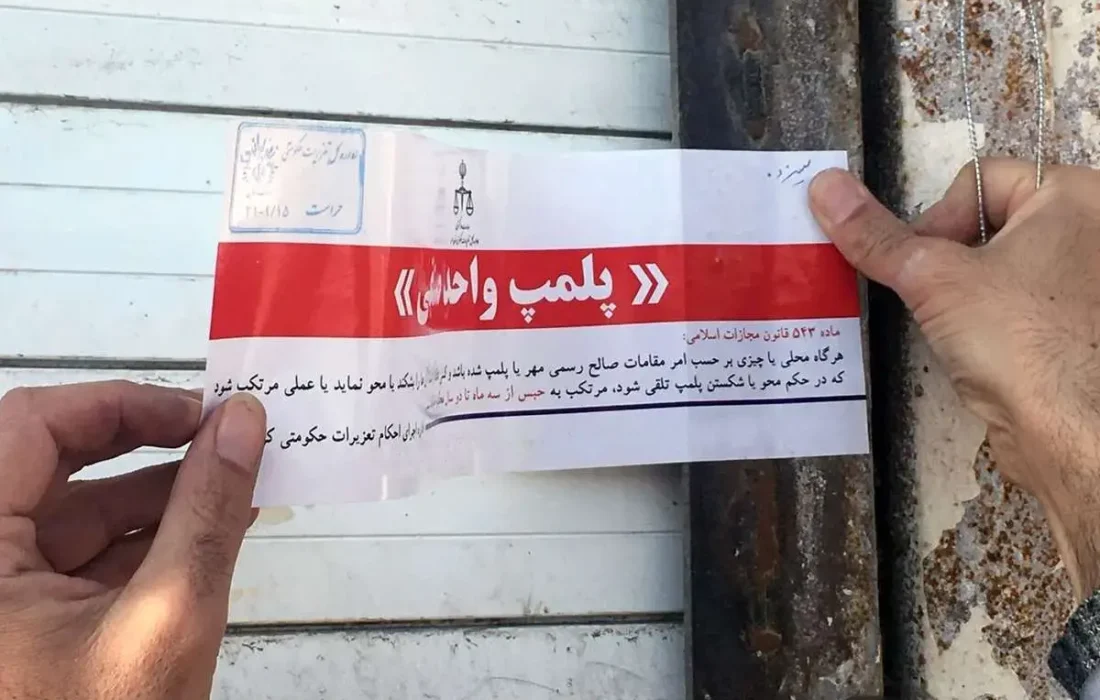 اداره کل تعزیرات حکومتی
حراست
« پلمپ واحد صنفی »
ماده ۵۴۳ قانون مجازات اسلامی:
هرگاه محلی یا چیزی بر حسب امر مقامات صالح رسمی مهر یا پلمپ شده باشد و را بشکند یا محو نماید یا عملی مرتکب شود
که در حکم محو یا شکستن پلمپ تلقی شود، مرتکب به حبس از سه ماه تا دو سال
اجرای احکام تعزیرات حکومتی